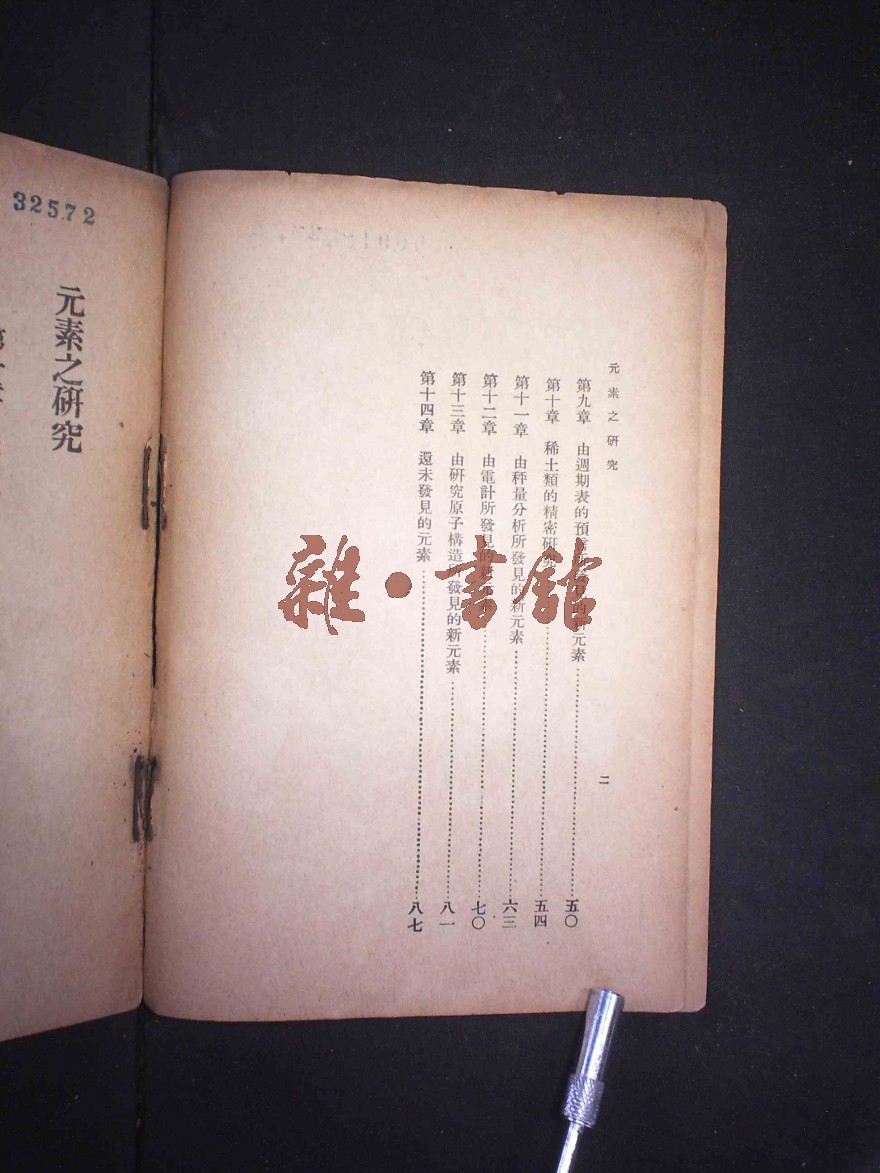 元素之研究
二
第九章 由週期表的預言所發見的新元素……五〇
第十章 稀土類的精密研究……五四
第十一章 由秤量分析所發見的新元素……六三
第十二章 由電計所發見的新元素……七〇
第十三章 由研究原子構造所發見的新元素……八一
第十四章 還未發見的元素……八七
雜·書館
32572
元素之研究